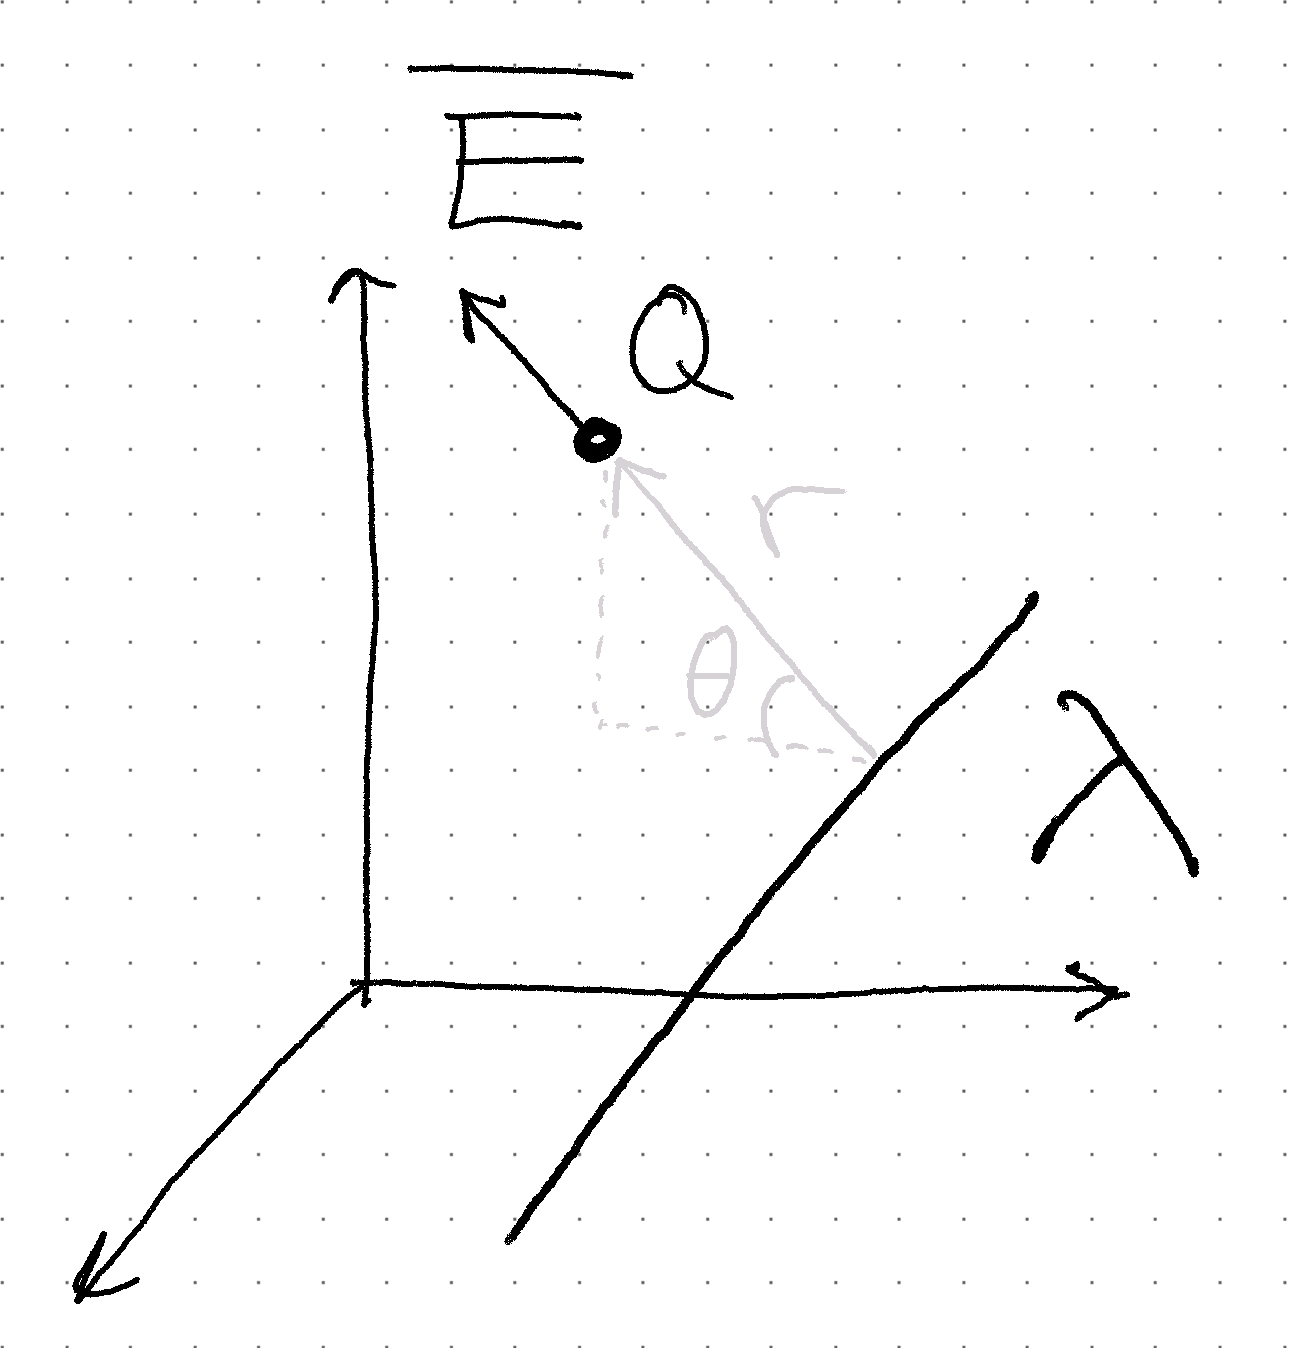 E̅
Q
r
θ
λ